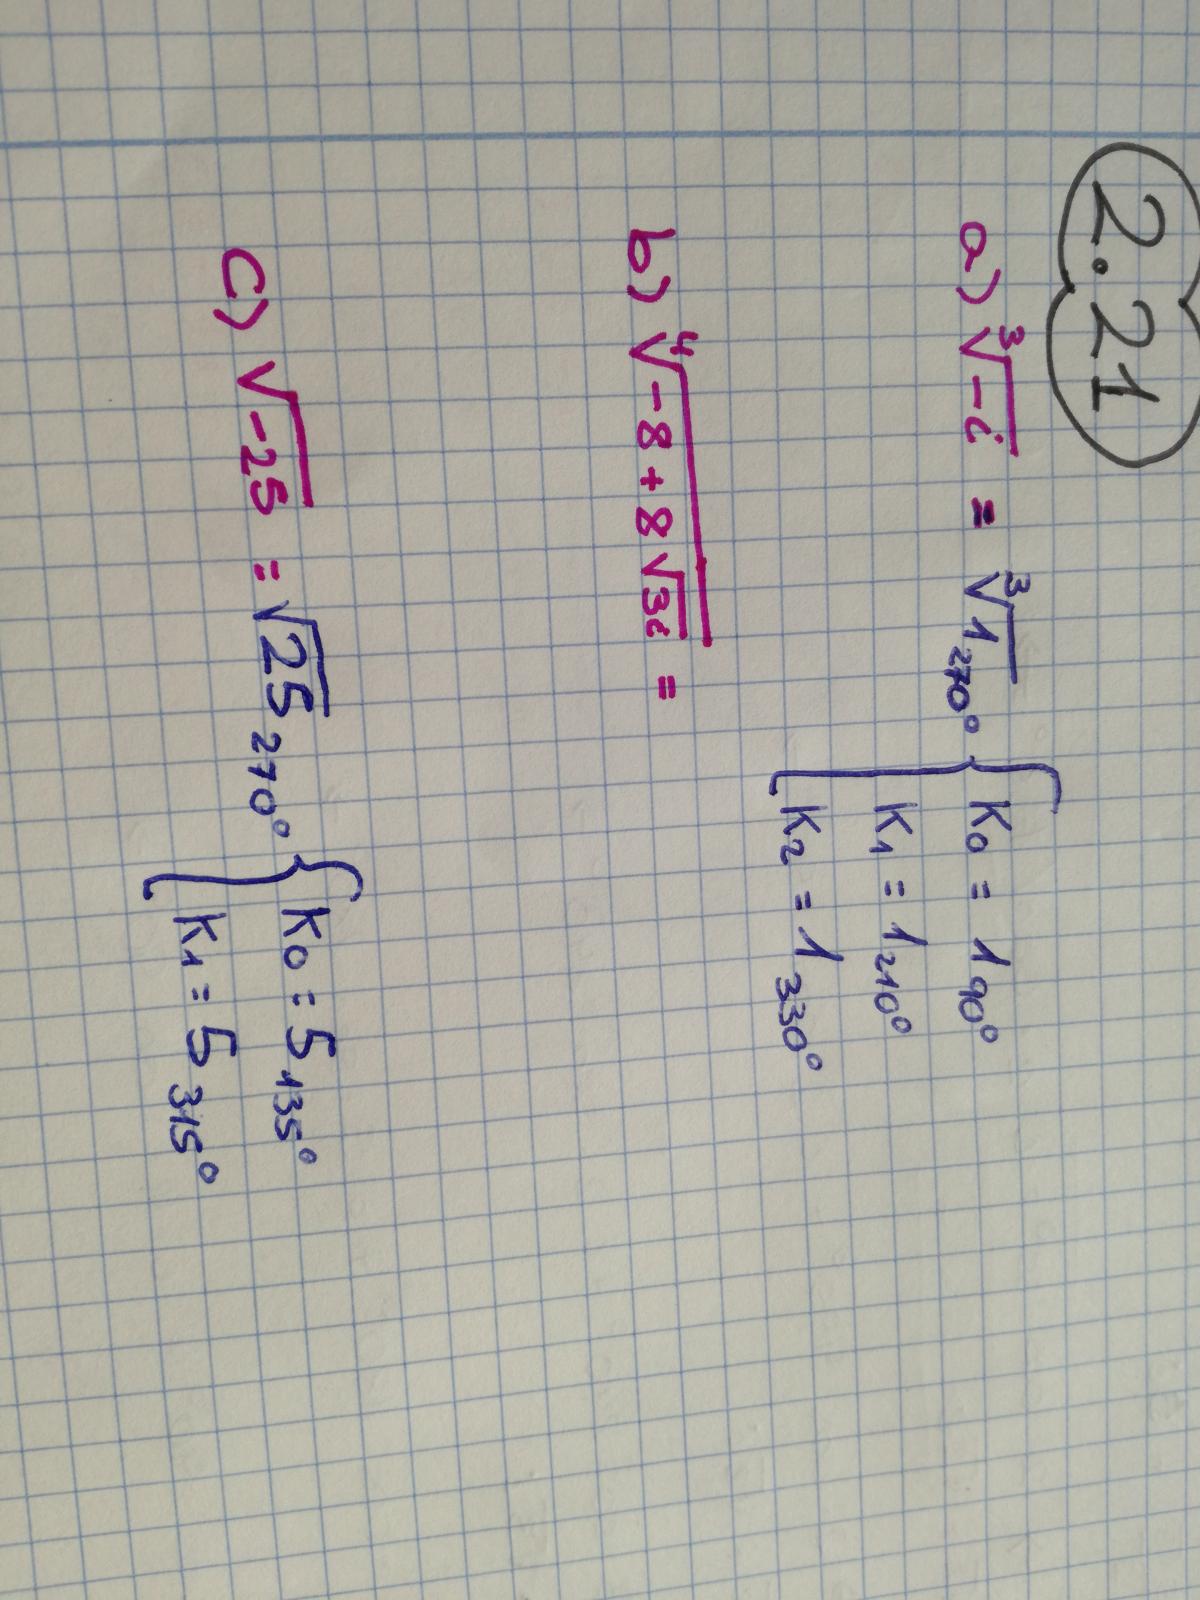 2.21
a) ∛-i = ∛1₂₇₀° { K₀ = 1₉₀°
K₁ = 1₂₁₀°
K₂ = 1₃₃₀°
b) ∜-8+8√3i =
c) √-25 = √25₂₇₀° { K₀ = 5₁₃₅°
K₁ = 5₃₁₅°